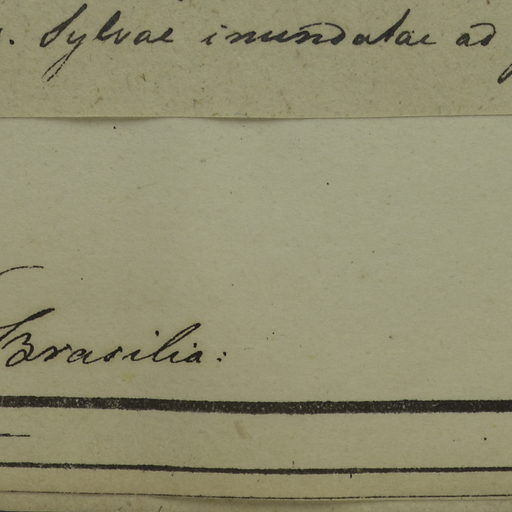 . Sylvae inundatae ad
Brasilia: